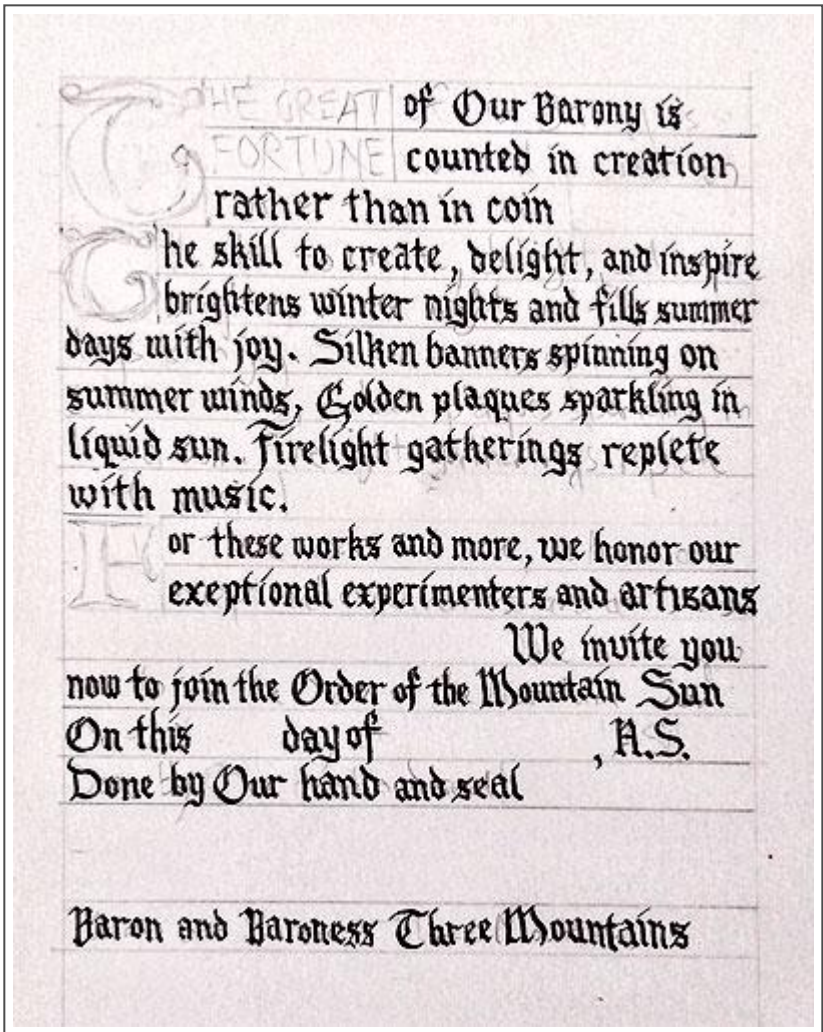 THE GREAT of Our Barony is
FORTUNE counted in creation
rather than in coin
The skill to create, delight, and inspire
brightens winter nights and fills summer
days with joy. Silken banners spinning on
summer winds, Golden plaques sparkling in
liquid sun. Firelight gatherings replete
with music.
For these works and more, we honor our
exeptional experimenters and artisans
We invite you
now to join the Order of the Mountain Sun
On this day of , A.S.
Done by Our hand and seal
Baron and Baroness Three Mountains